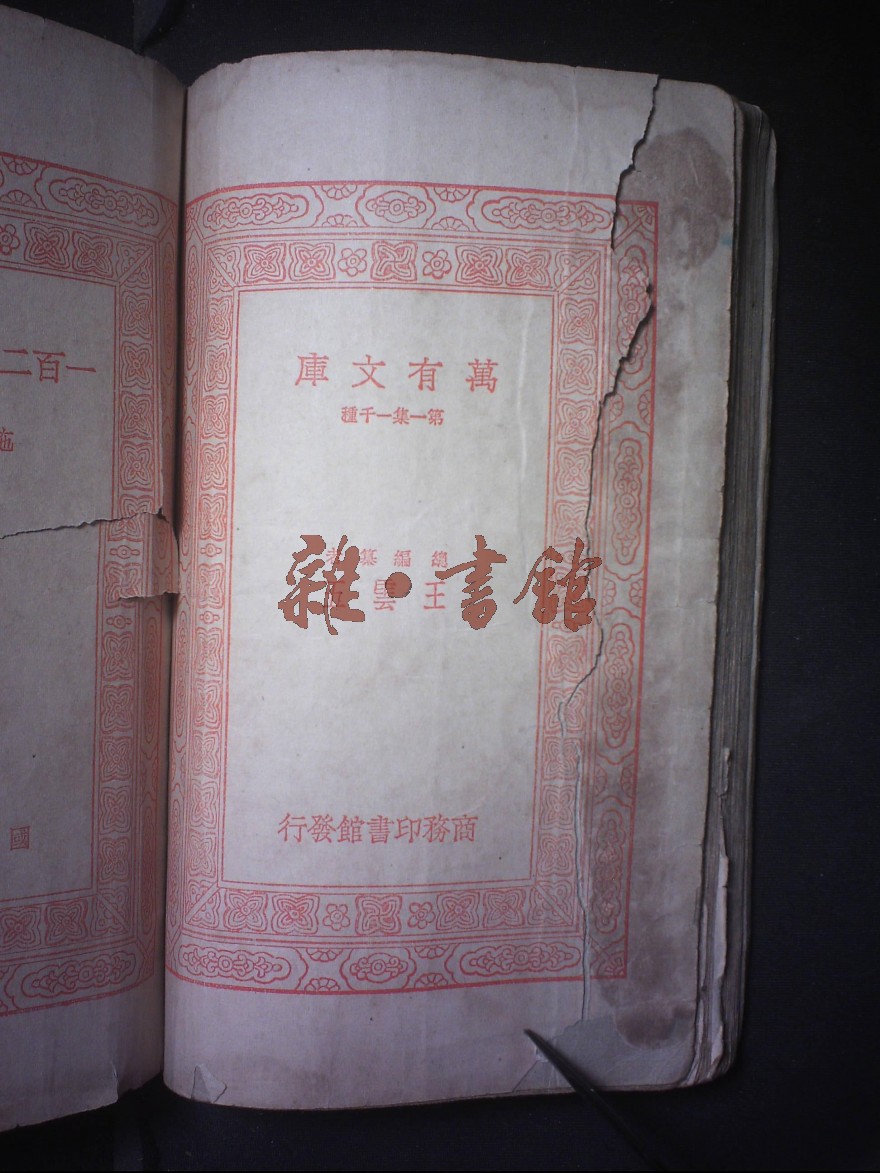 萬有文庫
第一集一千種
總編纂者
王雲
商務印書館發行
雜·書館
一百二
國